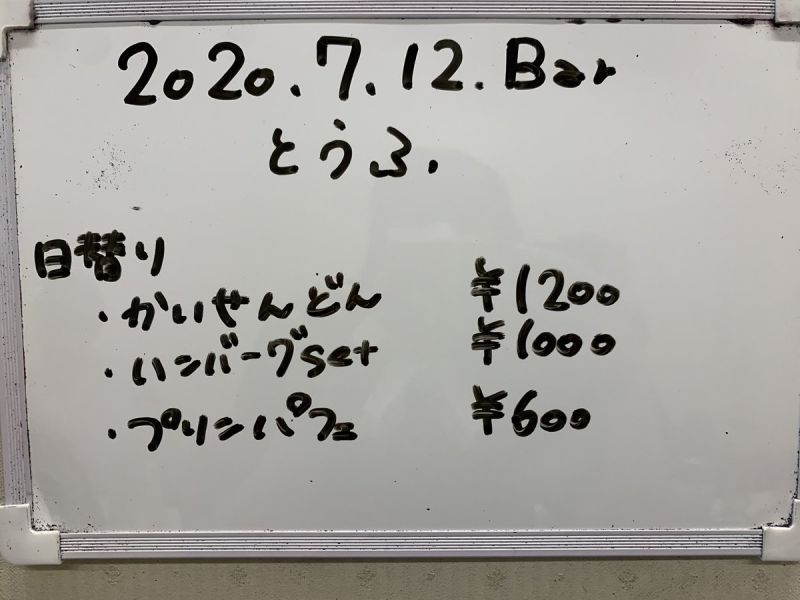 2020.7.12.Bar
とうふ.
日替り
・かいせんどん ¥1200
・ハンバーグset ¥1000
・プリンパフェ ¥600